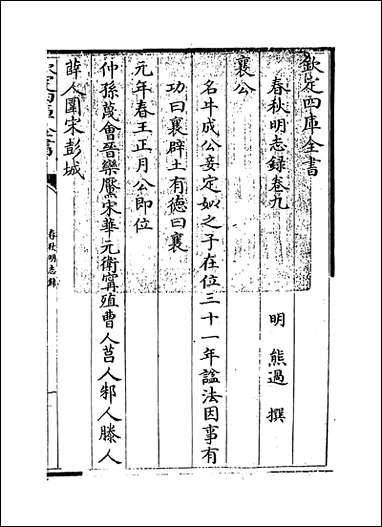 欽定四庫全書
春秋明志錄卷九
明 熊過 撰
襄公
名午成公妾定姒之子在位三十一年諡法因事有
功曰襄辟土有德曰襄
元年春王正月公即位
仲孫蔑會晉欒黶宋華元衛甯殖曹人莒人邾人滕人
薛人圍宋彭城
春秋明志錄